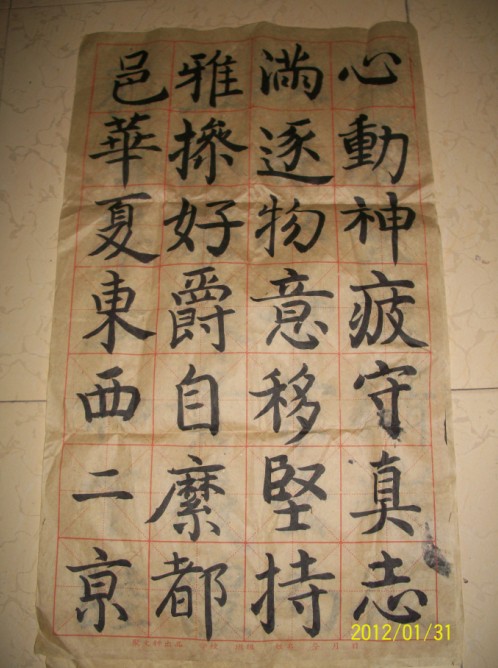 心動神疲守真志
滿逐物意移堅持
雅操好爵自縻都
邑華夏東西二京
2012/01/31